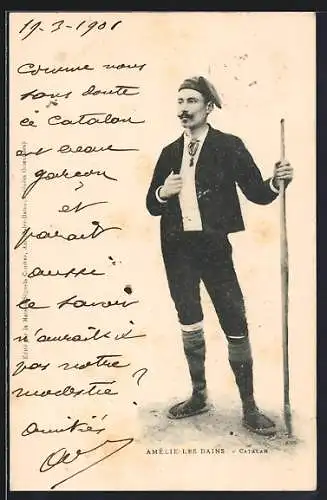 19-3-1901
Comme nous
sans doute
ce Catalan
est beau
garçon
et
parait
aussi
le savoir
n'aurait il
pas notre
modestie ?
Amitiés
AMÉLIE-LES BAINS. - CATALAN